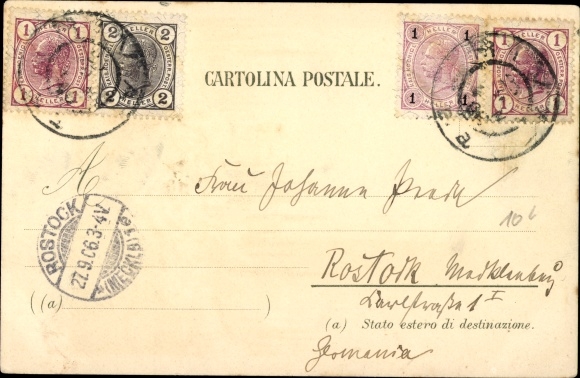 1 HELLER 1
2 HELLER 2
1 1
1 HELLER 1
CARTOLINA POSTALE.
A Frau Johanna
ROSTOCK
27.9.06.3-4V.
(MECKLB)
10
Rostock Mecklenburg
Carlstraße 1 I
((a) )
(a) Stato estero di destinazione.
Germania